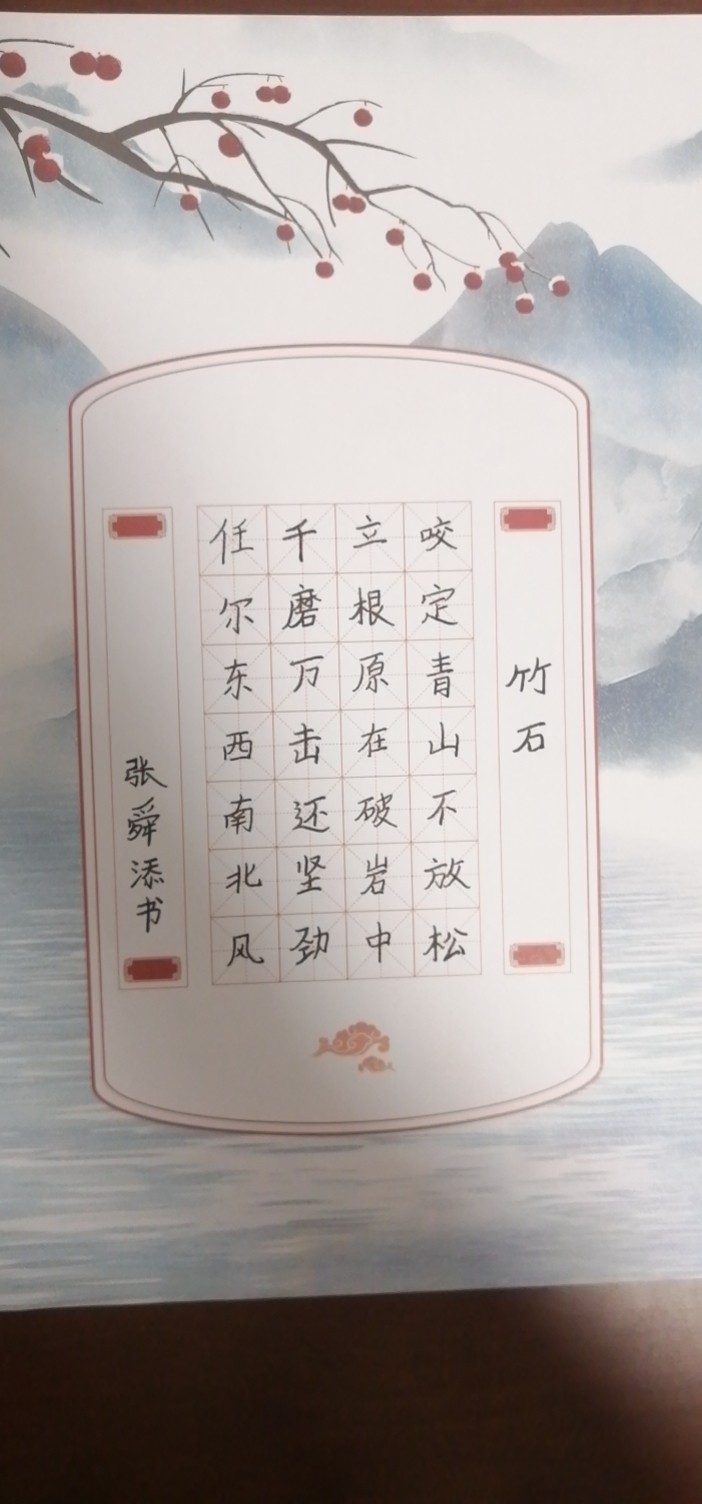 竹石
咬定青山不放松
立根原在破岩中
千磨万击还坚劲
任尔东西南北风
张舜添书